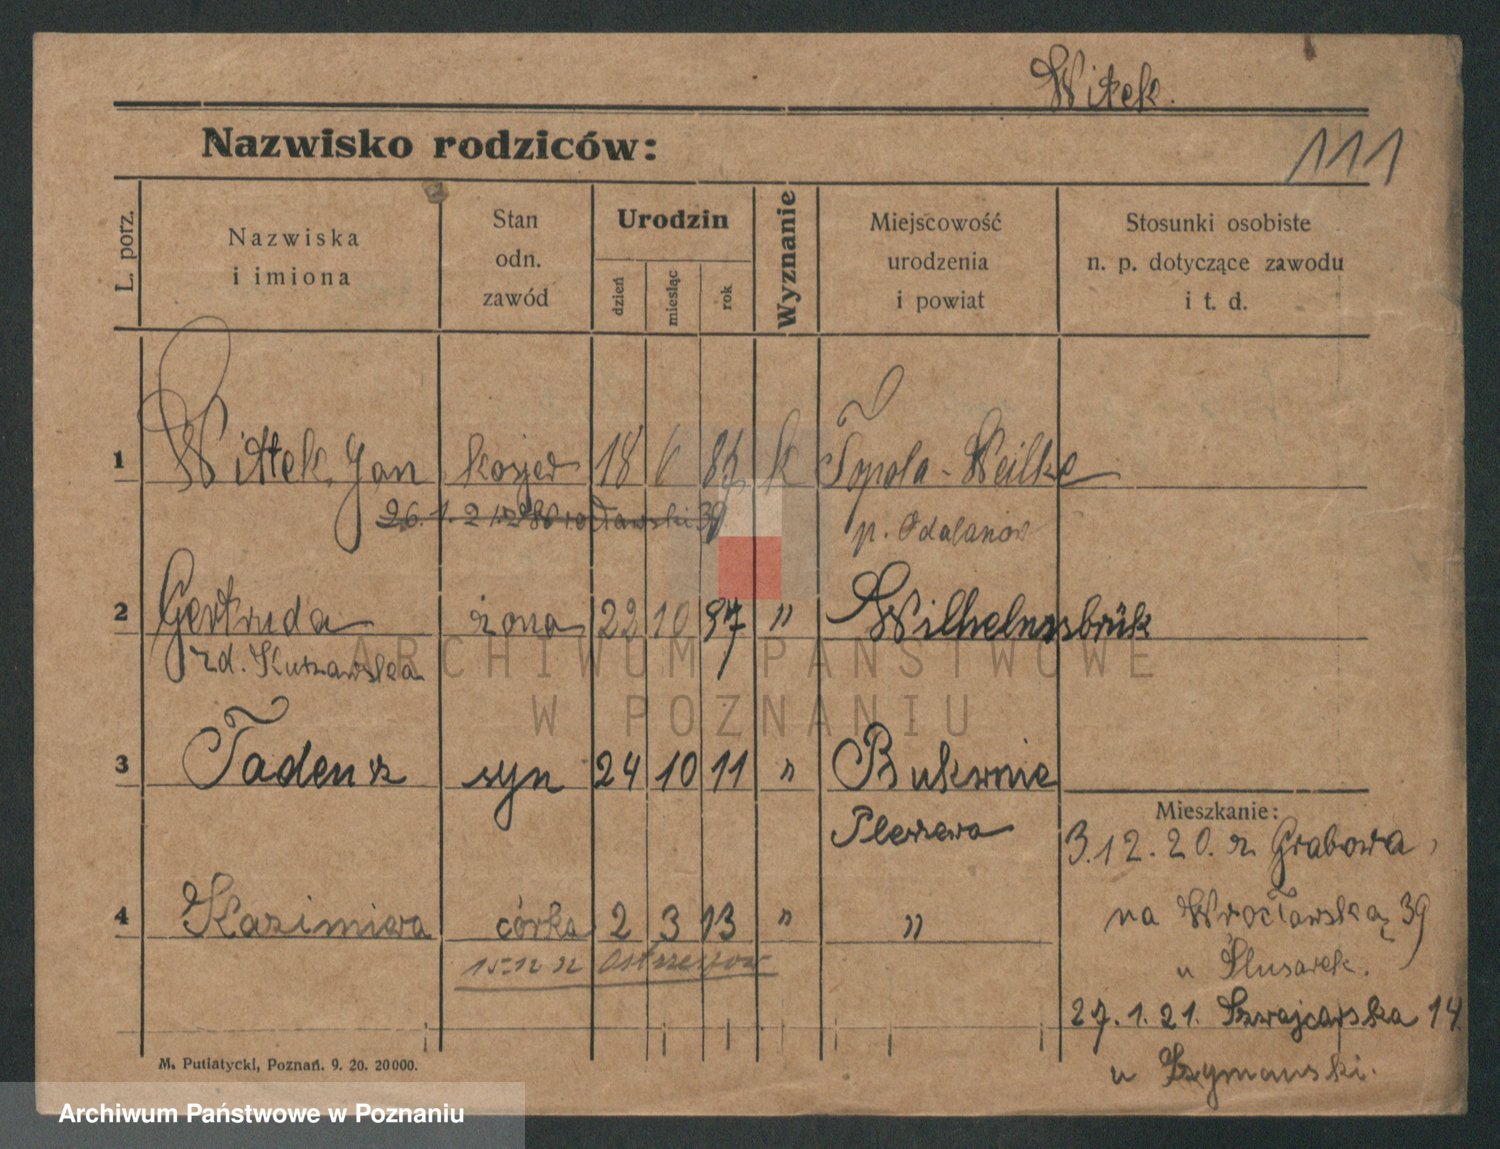 Witek.
111
Nazwisko rodziców:
L. porz.
Nazwiska
i imiona
Stan
odn.
zawód
Urodzin
dzień
miesiąc
rok
Wyznanie
Miejscowość
urodzenia
i powiat
Stosunki osobiste
n. p. dotyczące zawodu
i t. d.
1 Wittek Jan 18 6 k Topola-Weilke
26.1.21 39 p. Odalanow
2 Gertruda żona 22 10 97 " Wilhelmsbrük
zd. Kuszawska
ARCHIWUM PAŃSTWOWE
W POZNANIU
3 Tadeusz syn 24 10 11 " Bukwnie
Mieszkanie:
Pleszewa
3.12.20. z Grabowa
4 Kazimiera córka 2 3 13 " "
na Wrocławską 39
15.12 z Ostrzeszow
u Slusarek.
27.1.21. Szwajcarska 14
u Szymanski.
M. Putiatycki, Poznań. 9. 20. 20000.
Archiwum Państwowe w Poznaniu